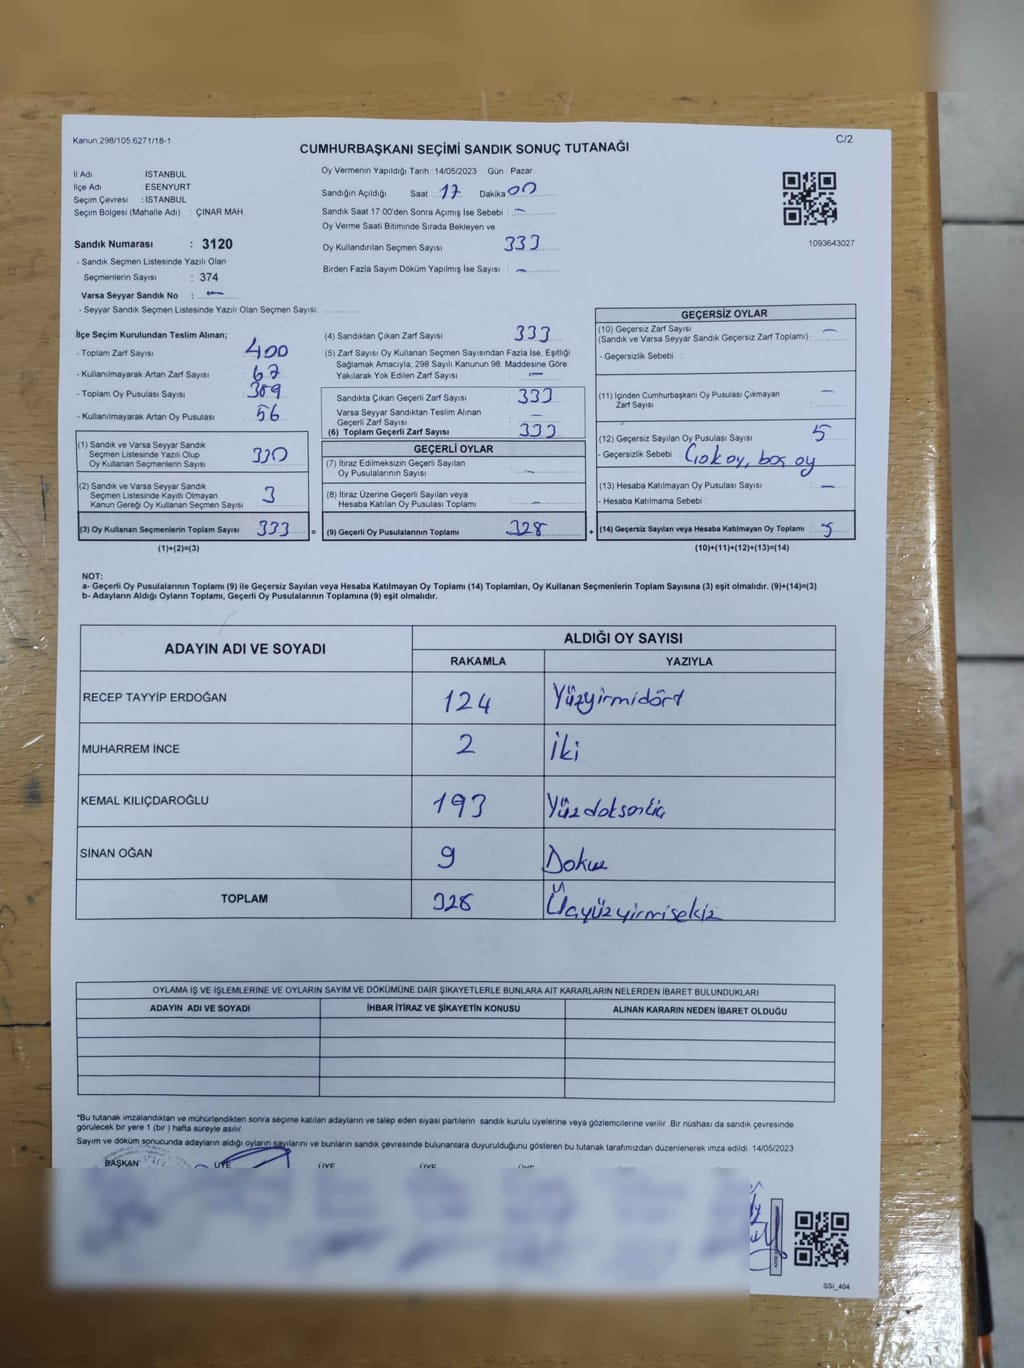 Kanun:298/105.6271/18-1
C/2
CUMHURBAŞKANI SEÇİMİ SANDIK SONUÇ TUTANAĞI
İl Adı İSTANBUL
İlçe Adı ESENYURT
Seçim Çevresi : İSTANBUL
Seçim Bölgesi (Mahalle Adı) : ÇINAR MAH
Sandık Numarası : 3120
- Sandık Seçmen Listesinde Yazılı Olan
Seçmenlerin Sayısı : 374
Varsa Seyyar Sandık No : –
- Seyyar Sandık Seçmen Listesinde Yazılı Olan Seçmen Sayısı:
Oy Vermenin Yapıldığı Tarih : 14/05/2023 Gün : Pazar
Sandığın Açıldığı Saat : 17 Dakika 00
Sandık Saat 17:00'den Sonra Açımış İse Sebebi : –
Oy Verme Saati Bitiminde Sırada Bekleyen ve
Oy Kullandırılan Seçmen Sayısı 333
Birden Fazla Sayım Döküm Yapılmış İse Sayısı : –
1093643027
İlçe Seçim Kurulundan Teslim Alınan;
- Toplam Zarf Sayısı : 400
- Kullanılmayarak Artan Zarf Sayısı : 67
- Toplam Oy Pusulası Sayısı : 389
- Kullanılmayarak Artan Oy Pusulası : 56
(1) Sandık ve Varsa Seyyar Sandık
Seçmen Listesinde Yazılı Olup
Oy Kullanan Seçmenlerin Sayısı 330
(2) Sandık ve Varsa Seyyar Sandık
Seçmen Listesinde Kayıtlı Olmayan
Kanun Gereği Oy Kullanan Seçmen Sayısı 3
(3) Oy Kullanan Seçmenlerin Toplam Sayısı 333 =
(1)+(2)=(3)
(4) Sandıktan Çıkan Zarf Sayısı : 333
(5) Zarf Sayısı Oy Kullanan Seçmen Sayısından Fazla İse, Eşitliği
Sağlamak Amacıyla; 298 Sayılı Kanunun 98. Maddesine Göre
Yakılarak Yok Edilen Zarf Sayısı : –
Sandıkta Çıkan Geçerli Zarf Sayısı : 333
Varsa Seyyar Sandıktan Teslim Alınan
Geçerli Zarf Sayısı : –
(6) Toplam Geçerli Zarf Sayısı : 333
GEÇERLİ OYLAR
(7) İtiraz Edilmeksizin Geçerli Sayılan
Oy Pusulalarının Sayısı : –
(8) İtiraz Üzerine Geçerli Sayılan veya
Hesaba Katılan Oy Pusulaları Toplamı : –
(9) Geçerli Oy Pusulalarının Toplamı : 328 +
GEÇERSİZ OYLAR
(10) Geçersiz Zarf Sayısı : –
(Sandık ve Varsa Seyyar Sandık Geçersiz Zarf Toplamı)
- Geçersizlik Sebebi :
(11) İçinden Cumhurbaşkanı Oy Pusulası Çıkmayan
Zarf Sayısı : –
(12) Geçersiz Sayılan Oy Pusulası Sayısı : 5
- Geçersizlik Sebebi : Çok oy, boş oy
(13) Hesaba Katılmayan Oy Pusulası Sayısı : –
- Hesaba Katılmama Sebebi :
(14) Geçersiz Sayılan veya Hesaba Katılmayan Oy Toplamı : 5
(10)+(11)+(12)+(13)=(14)
NOT:
a- Geçerli Oy Pusulalarının Toplamı (9) ile Geçersiz Sayılan veya Hesaba Katılmayan Oy Toplamı (14) Toplamları, Oy Kullanan Seçmenlerin Toplam Sayısına (3) eşit olmalıdır. (9)+(14)=(3)
b- Adayların Aldığı Oyların Toplamı, Geçerli Oy Pusulalarının Toplamına (9) eşit olmalıdır.
ADAYIN ADI VE SOYADI ALDIĞI OY SAYISI
RAKAMLA YAZIYLA
RECEP TAYYİP ERDOĞAN 124 Yüzyirmidört
MUHARREM İNCE 2 İki
KEMAL KILIÇDAROĞLU 193 Yüzdoksanüç
SİNAN OĞAN 9 Dokuz
TOPLAM 328 Üçyüzyirmisekiz
OYLAMA İŞ VE İŞLEMLERİNE VE OYLARIN SAYIM VE DÖKÜMÜNE DAİR ŞİKAYETLERLE BUNLARA AİT KARARLARIN NELERDEN İBARET BULUNDUKLARI
ADAYIN ADI VE SOYADI İHBAR İTİRAZ VE ŞİKAYETİN KONUSU ALINAN KARARIN NEDEN İBARET OLDUĞU
*Bu tutanak imzalandıktan ve mühürlendikten sonra seçime katılan adayların ve talep eden siyasi partilerin sandık kurulu üyelerine veya gözlemcilerine verilir. Bir nüshası da sandık çevresinde
görülecek bir yere 1 (bir ) hafta süreyle asılır.
Sayım ve döküm sonucunda adayların aldığı oyların sayılarını ve bunların sandık çevresinde bulunanlara duyurulduğunu gösteren bu tutanak tarafımızdan düzenlenerek imza edildi. 14/05/2023
BAŞKAN ÜYE ÜYE ÜYE ÜYE
SSI_404